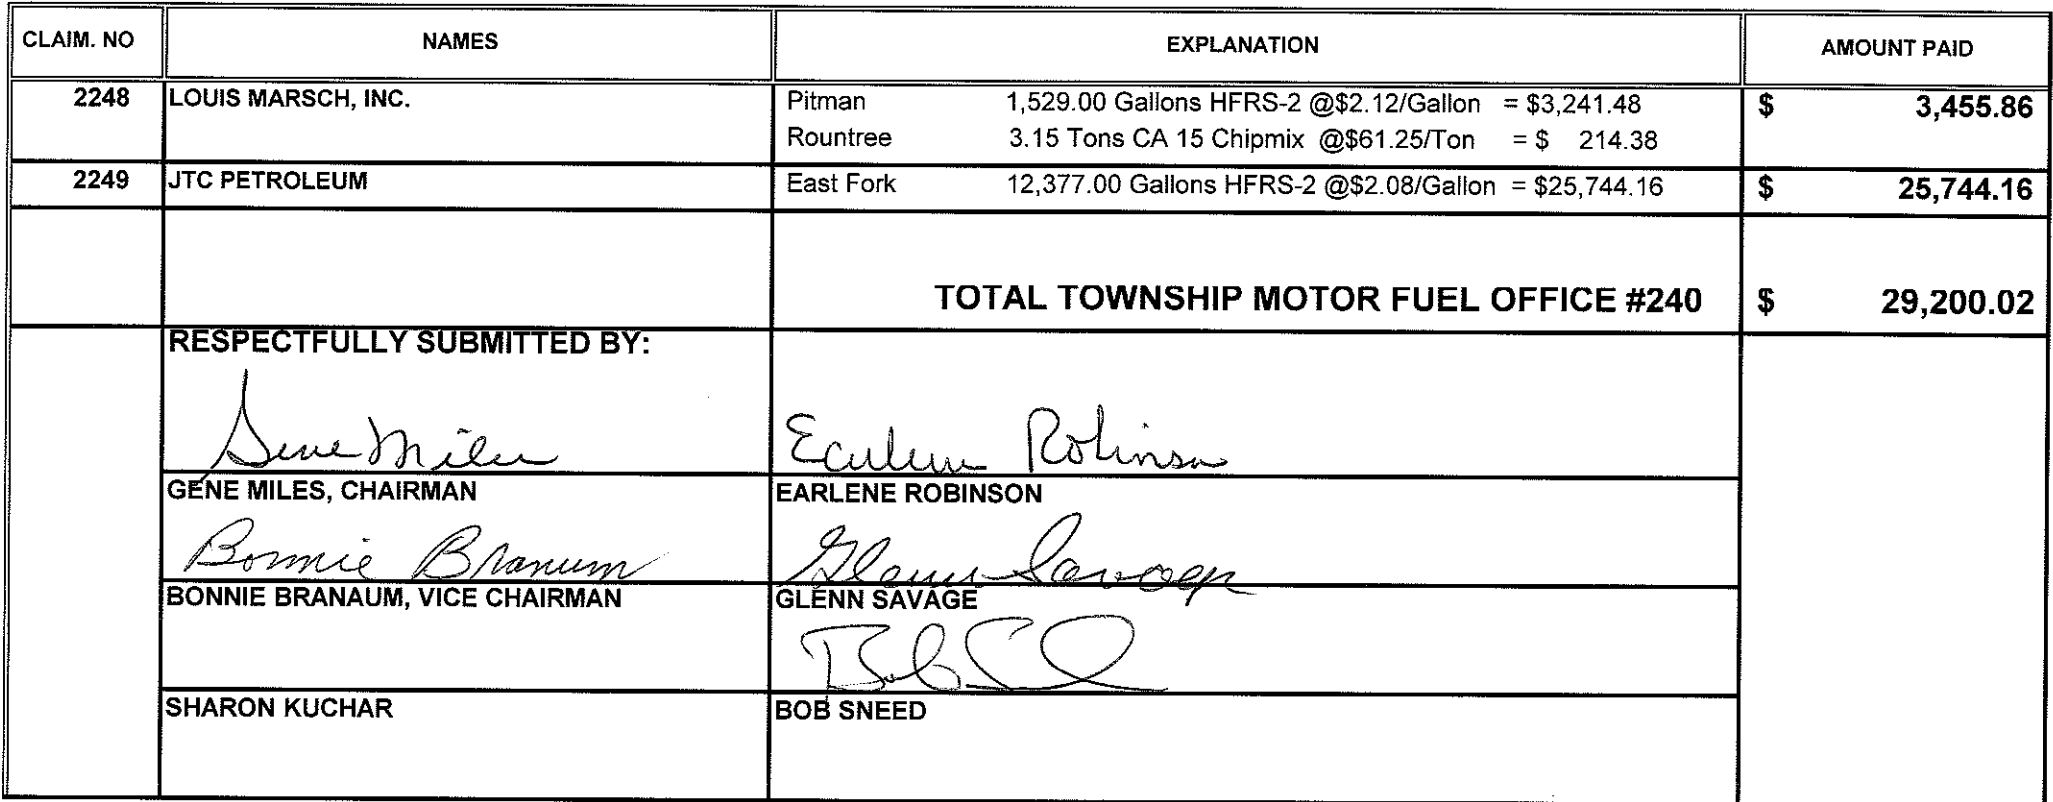 CLAIM. NO NAMES EXPLANATION AMOUNT PAID
2248 LOUIS MARSCH, INC. Pitman 1,529.00 Gallons HFRS-2 @$2.12/Gallon = $3,241.48 $ 3,455.86
Rountree 3.15 Tons CA 15 Chipmix @$61.25/Ton = $ 214.38
2249 JTC PETROLEUM East Fork 12,377.00 Gallons HFRS-2 @$2.08/Gallon = $25,744.16 $ 25,744.16
TOTAL TOWNSHIP MOTOR FUEL OFFICE #240 $ 29,200.02
RESPECTFULLY SUBMITTED BY:
Gene Miles Earlene Robinson
GENE MILES, CHAIRMAN EARLENE ROBINSON
Bonnie Branum Glenn Savage
BONNIE BRANAUM, VICE CHAIRMAN GLENN SAVAGE
Bob
SHARON KUCHAR BOB SNEED